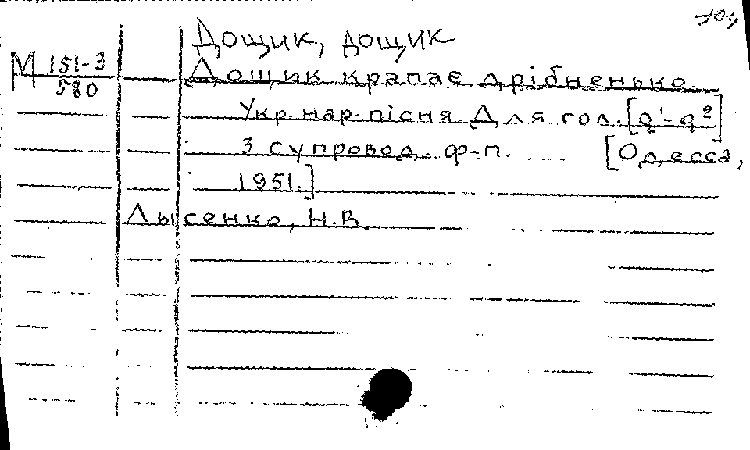 Дощик, дощик
М 151-3
580
Дощик крапає дрібненько
Укр. нар. пісня. Для гол. [d¹-g²]
З супровод. ф-п. [Одесса,
1951.]
Лысенко, Н.В.